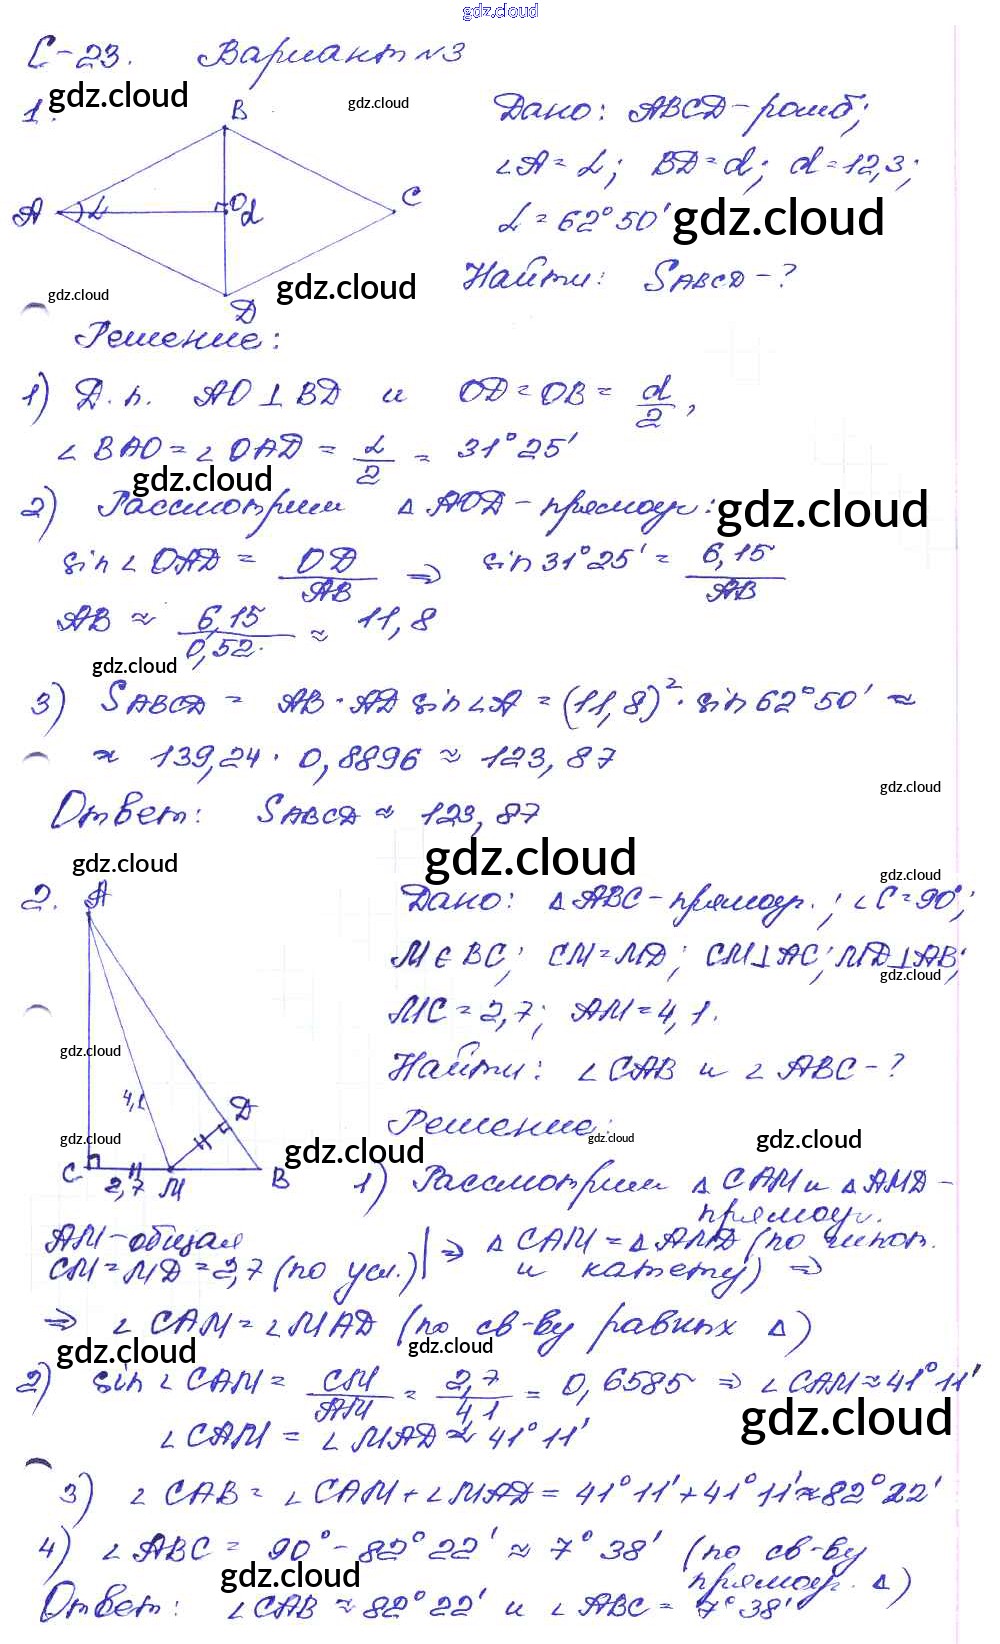 gdz.cloud
С-23. Вариант №3
gdz.cloud gdz.cloud
1.
B
A α O d C
D
Дано: ABCD - ромб;
∠A = α; BD = d; d = 12,3;
α = 62°50' gdz.cloud
Найти: S_ABCD - ?
gdz.cloud gdz.cloud
Решение:
1) Д.п. AO ⊥ BD и OD = OB = d/2,
∠BAO = ∠OAD = α/2 = 31°25'
gdz.cloud
2) Рассмотрим △AOD - прямоуг.: gdz.cloud
sin∠OAD = OD/AB ⇒ sin31°25' = 6,15/AB
AB ≈ 6,15/0,52 ≈ 11,8
gdz.cloud
3) S_ABCD = AB · AD sin∠A = (11,8)² · sin62°50' ≈
≈ 139,24 · 0,8896 ≈ 123,87
gdz.cloud
Ответ: S_ABCD ≈ 123,87
gdz.cloud gdz.cloud
gdz.cloud
2.
A
4,1
D
C 2,7 M B
Дано: △ABC - прямоуг.; ∠C = 90°;
M ∈ BC; CM = MD; CM ⊥ AC; MD ⊥ AB;
gdz.cloud
MC = 2,7; AM = 4,1.
gdz.cloud
Найти: ∠CAB и ∠ABC - ?
Решение:
gdz.cloud gdz.cloud gdz.cloud gdz.cloud
1) Рассмотрим △CAM и △AMD -
прямоуг.
AM - общая
CM = MD = 2,7 (по усл.) | ⇒ △CAM = △AMD (по гипот.
и катету) ⇒
⇒ ∠CAM = ∠MAD (по св-ву равных △)
gdz.cloud gdz.cloud
2) sin∠CAM = CM/AM = 2,7/4,1 = 0,6585 ⇒ ∠CAM ≈ 41°11'
gdz.cloud
∠CAM = ∠MAD ≈ 41°11'
3) ∠CAB = ∠CAM + ∠MAD = 41°11' + 41°11' ≈ 82°22'
4) ∠ABC = 90° - 82°22' ≈ 7°38' (по св-ву
прямоуг. △)
gdz.cloud
Ответ: ∠CAB ≈ 82°22' и ∠ABC = 7°38'